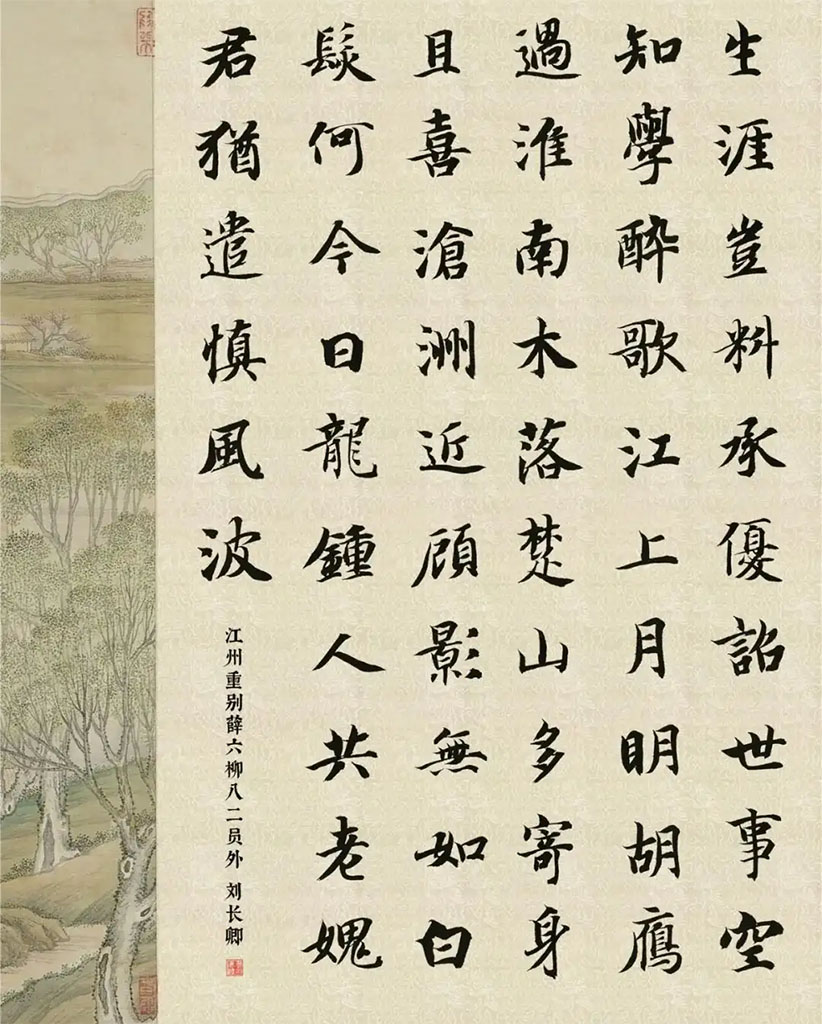 生涯豈料承優詔世事空
知學醉歌江上月明胡鴈
過淮南木落楚山多寄身
且喜滄洲近顧影無如白
髮何今日龍鍾人共老媿
君猶遣慎風波
江州重别薛六柳八二员外 刘长卿